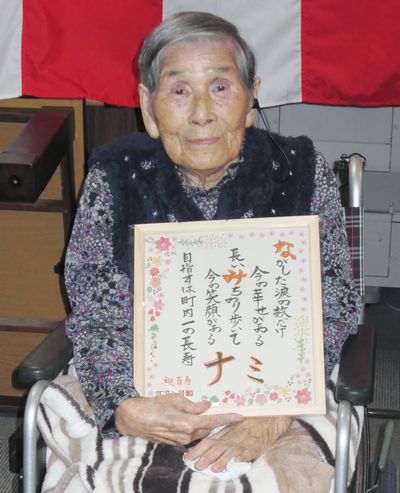 ながした涙の数だけ
今の幸せがある
長いみちのり歩いて
今の笑顔がある
ナミ
目指すは町内一の長寿
祝百寿